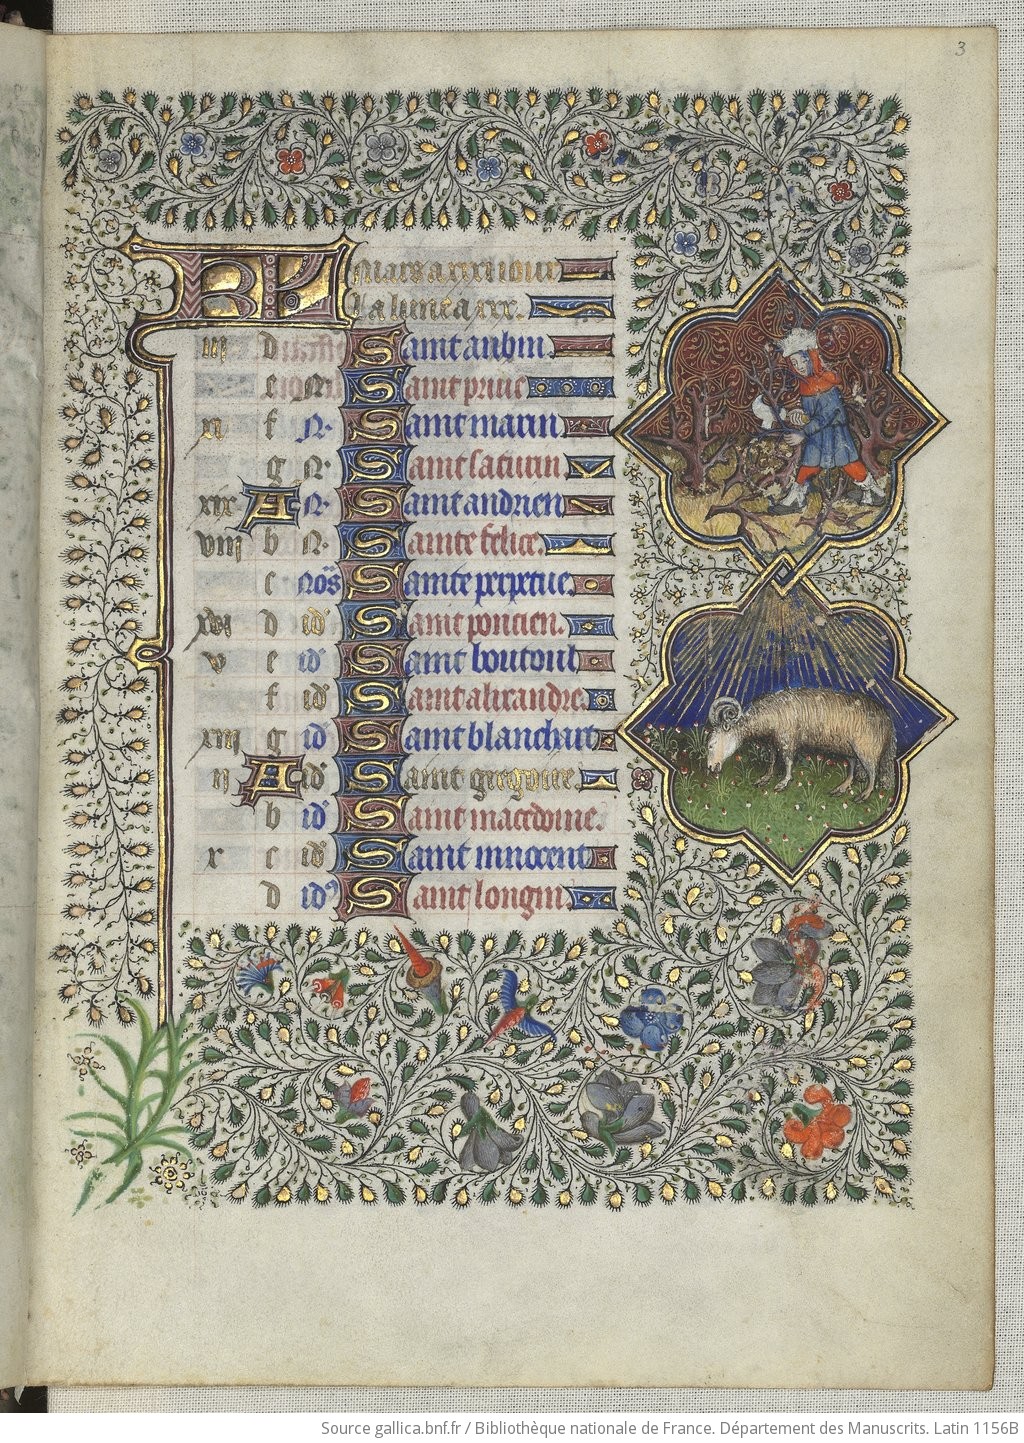 3
KL Mars a xxxi iours
La lune a xxx.
iii d Saint aubin.
e Saint priue
xi f N. Saint marin
g N. Saint saturin
xix A N. Saint andrien
viii b N. Sainte felice.
c Nōs Sainte perpetue.
xvi d id Saint poncien.
v e id Saint boutoul
f id Saint alixandre.
xiii g id Saint blanchart
ii A id Saint gregoire.
b id Saint macedoine.
x c id Saint innocent
d id Saint longin.
Source gallica.bnf.fr / Bibliothèque nationale de France. Département des Manuscrits. Latin 1156B